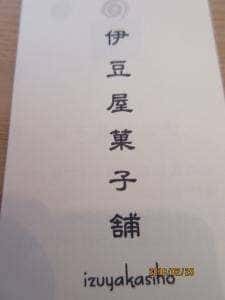 伊豆屋菓子舗
izuyakasiho